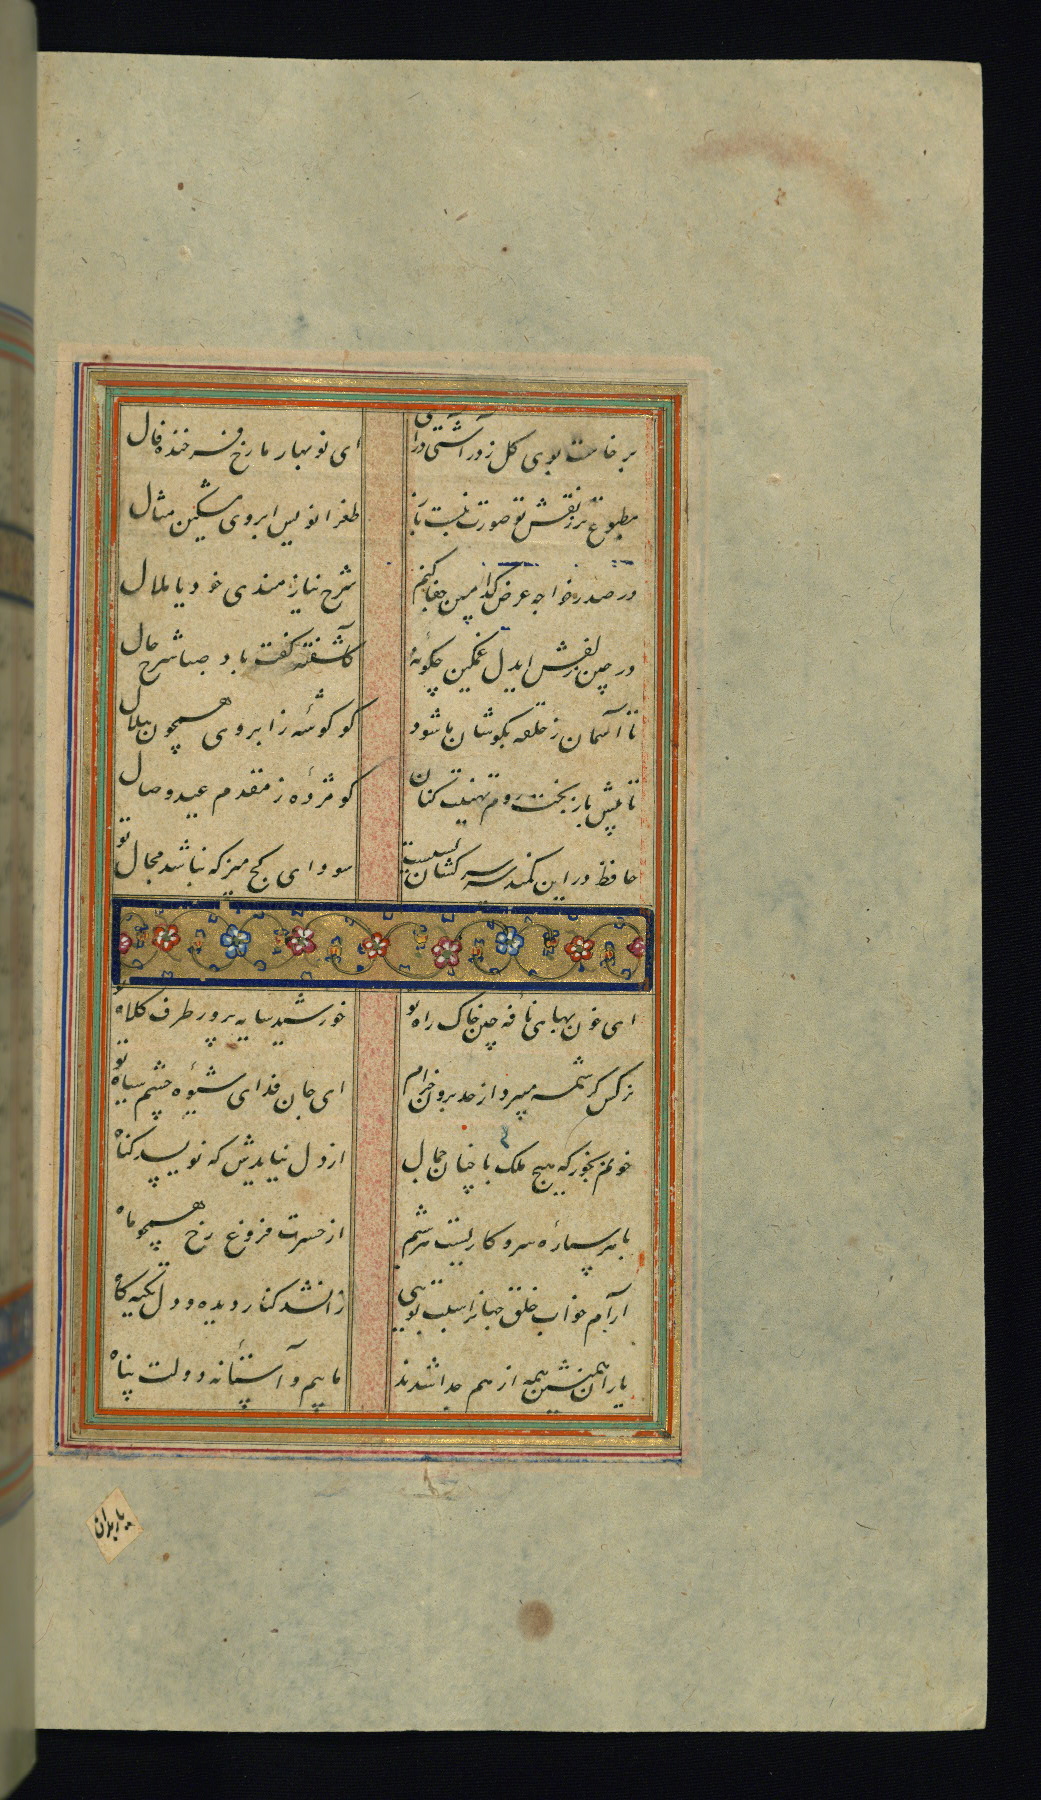 برخاست بوی گل ز در آشتی درآی ای نو بهار ما رخ فرخنده فال
مطبوع تر ز نقش تو صورت نبست باز طغرانویس ابروی مشکین مثال
در صدر خواجه عرض کدامین جفا کنم شرح نیازمندی خود یا ملال
در چین زلفش ایدل غمگین چگونهٔ کآشفته گفت باد صبا شرح حال
تا آسمان ز حلقه بگوشان ما شود کو گوشهٔ ز ابروی همچون هلال
تا پیش باز بخت روم تهنیت کنان کو مژدهٔ ز مقدم عید وصال
حافظ در این کمند سر سرکشان بسیست سودای کج مپز که نباشد مجال تو
ای خون بهای نافه چین خاک راه تو خورشید سایه پرور طرف کلاه
نرگس کرشمه میبرد از حد برون خرام ای جان فدای شیوه چشم سیاه تو
خونم بخور که هیچ ملک با چنان جمال از دل نیایدش که نویسد گناه
با هر ستاره سر و کاریست هر شبم از حسرت فروغ رخ همچو ماه
آرام و خواب خلق جهانرا سبب تویی زانشد کنار دیده و دل تکیه گاه
یاران همنشین همه از هم جدا شدند ماییم و آستانه دولت پناه
یار بدان